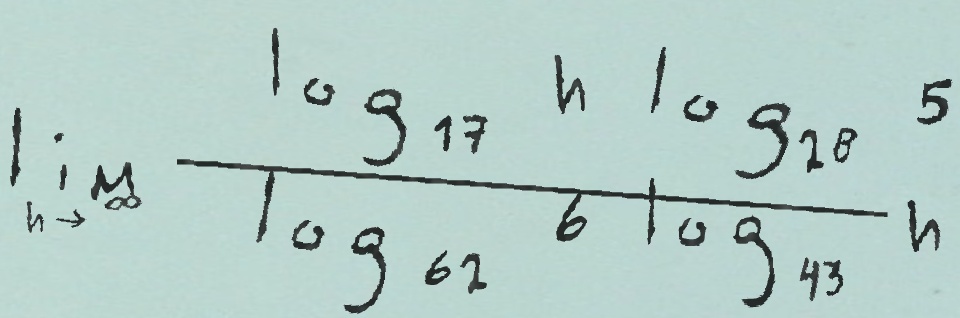 \lim_{h \to \infty} \frac{\log_{17} h \log_{28} 5}{\log_{62} 6 \log_{43} h}